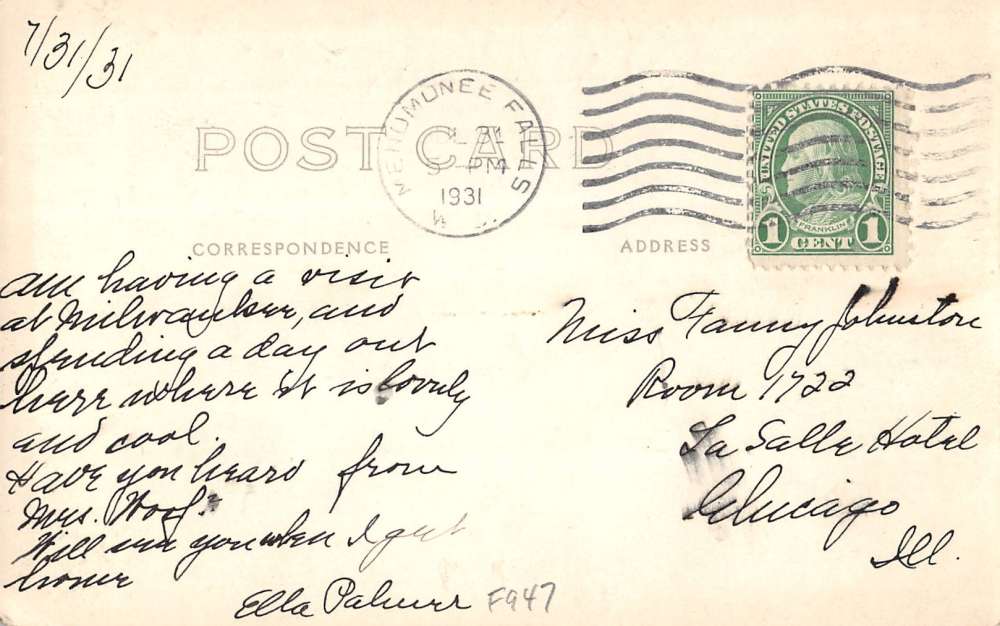 7/31/31
MENOMONEE FALLS
31
5 PM
1931
W
UNITED STATES POSTAGE
FRANKLIN
1 CENT 1
POST CARD
CORRESPONDENCE
ADDRESS
am having a visit
at Milwaukee, and
spending a day out
here where it is lovely
and cool.
Have you heard from
Mrs.
Will see you when I get
home
Ella Palmer
F947
Miss Fanny Johnston
Room 1722
La Salle Hotel
Chicago
Ill.